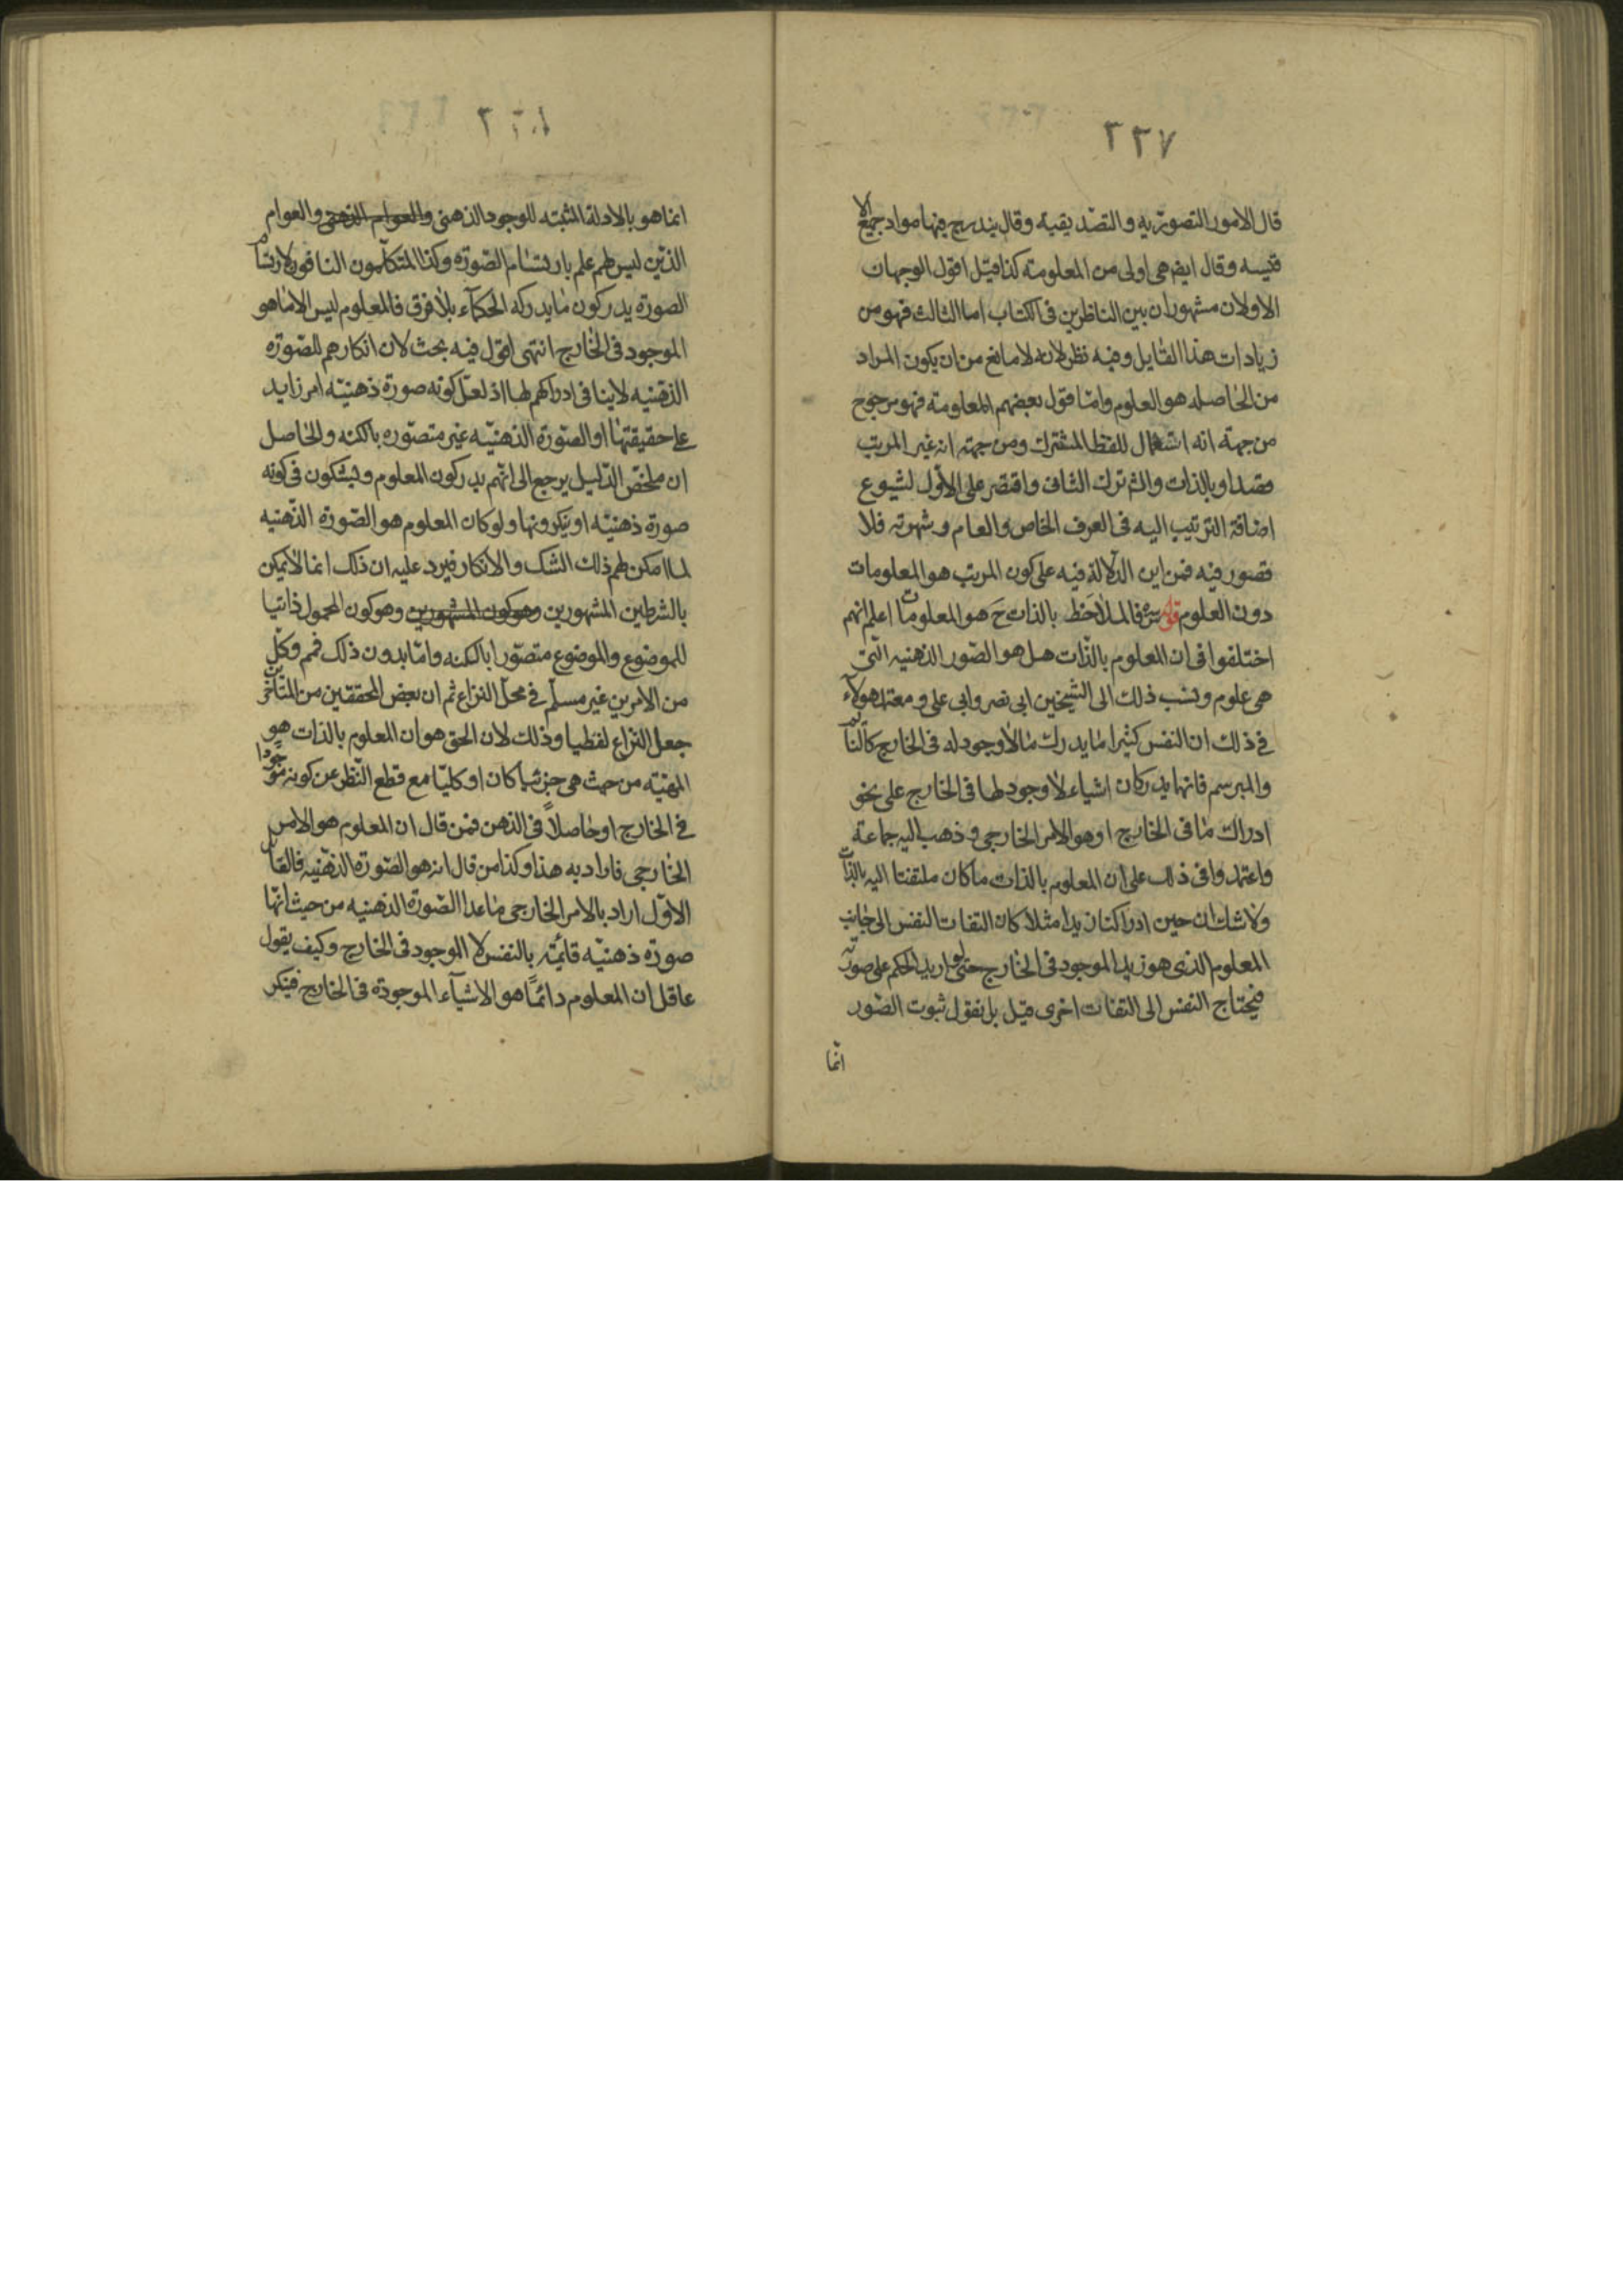 ٢٢٧
قال الامور التصوريه والتصديقية وقال يندرج فيها مواد جميع الا
قيسه وقال ايض هى اولى من المعلومته كذا قيل اقول الوجهان
الاولان مشهوران بين الناظرين فى الكتاب اما الثالث فهو من
زيادات هذا القايل وفيه نظر لانه لا مانع من ان يكون المراد
من الحاصله هو العلوم وامّا قول بعضهم المعلومته فهو مرجوح
من جهته انه اشتمال للفظ المشترك ومن جهته انه غير المرتب
قصدا وبالذات والش ترك الثانى واقتصر على الاوّل لشيوع
اضافة الترتيب اليه فى العرف الخاص والعام وشهرته فلا
قصور فيه فمن اين الدّلالة فيه على كون المرتب هو المعلومات
دون العلوم قوله سره فالملاحَظ بالذات حَ هو المعلومات اعلم انهم
اختلفوا فى ان المعلوم بالذّات هل هو الصّور الذهنيه التى
هى علوم ونسب ذلك الى الشيخين ابى نصر وابى على ومعتمد هولآء
فى ذلك ان النفس كثيرا ما يدرك ما لا وجود له فى الخارج كالنائم
والمبرسم فانها يدركان اشياء لا وجود لها فى الخارج على نحو
ادراك ما فى الخارج او هو الامر الخارجى وذهب اليه جماعة
واعتمدوا فى ذلك على ان المعلوم بالذات ما كان ملتفتا اليه بالذات
ولا شك ان حين ادراكنا زيدا مثلا كان التفات النفس الى جانب
المعلوم الذى هو زيد الموجود فى الخارج حتى لو اريد الحكم على صورته
فيحتاج النفس الى التفات اخرى قيل بل نقول ثبوت الصّور
انّما
انما هو بالادلة المثبته للوجود الذهنى والعوام الذهنى والعوام
الذّين ليس لهم علم بارتسام الصّورة وكذا المتكلّمون النافون لارتسام
الصورة يدركون ما يدركه الحكمآء بلا فرق فالمعلوم ليس الا ما هو
الموجود فى الخارج انتهى اقول فيه بحث لان انكارهم للصّورة
الذهنيه لا ينافى ادراكهم لها اذ لعلّ كونه صورة ذهنيّه امر زايد
على حقيقتها او الصّورة الذهنيّه غير متصوّره بالكنه والحاصل
ان ملخّص الدّليل يرجع الى انّهم يدركون المعلوم ويشكون فى كونه
صورة ذهنيّه او ينكرونها ولو كان المعلوم هو الصّورة الذّهنيه
لما امكن لهم ذلك الشك والانكار فيرد عليه ان ذلك انما لا يمكن
بالشرطين المشهورين وهو كون المشهورين وهو كون المحمول ذاتيا
للموضوع والموضوع متصوّرا بالكنه وامّا بدون ذلك فمم وكلّ
من الامرين غير مسلّم فى محلّ النزاع ثم ان بعض المحققين من المتاخرين
جعل النزاع لفظيا وذلك لان الحق هو ان المعلوم بالذات هو
المهيّه من حيث هى جزئيا كان او كليّا مع قطع النّظر عن كونه موجودا
فى الخارج او حاصلاً فى الذهن فمن قال ان المعلوم هو الامر
الخارجى فاراد به هذا وكذا من قال انه هو الصّورة الذهنيه فالقائل
الاوّل اراد بالامر الخارجى ما عدا الصّورة الذهنيه من حيث انّها
صورة ذهنيّه قائمته بالنفس لا الموجود فى الخارج وكيف يقول
عاقل ان المعلوم دائماً هو الاشيآء الموجودة فى الخارج فينكر